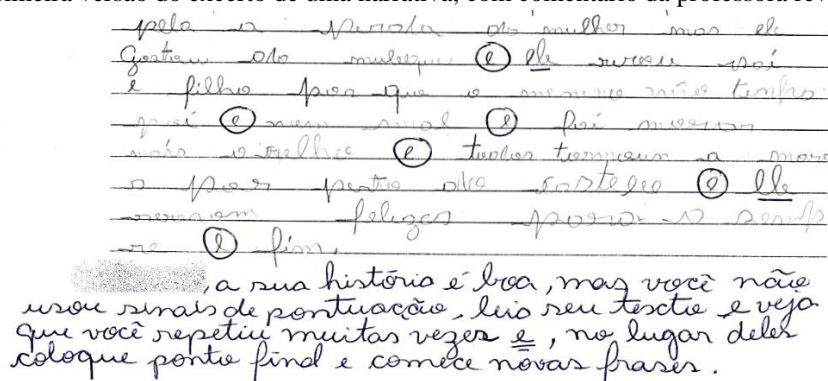 primeira versão do excerto de uma narrativa, com comentário da professora
pela a perola do mulher mas ele
Gostou do muleque e ele pai
e filho por que o menino não tenha
pai e nem e foi morar
o velho e todos a mora
o por perto do castelo e ele
felizes para o semp
re e fim.
, a sua história é boa, mas você não
usou sinais de pontuação, leia seu texto e veja
que você repetiu muitas vezes e, no lugar deles
coloque ponto final e comece novas frases.